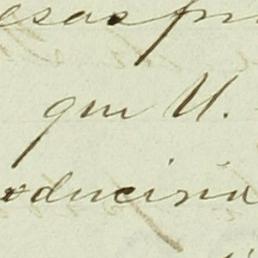 esas pr
que U.
oduciria